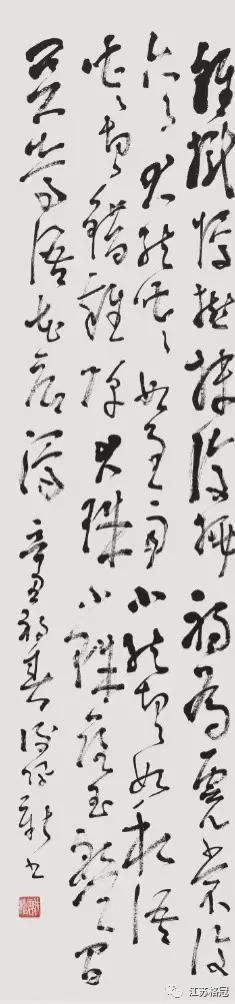 輕攏慢撚抹復挑初為霓裳後
六幺大絃嘈嘈如急雨小絃切切如私語
嘈嘈切切錯雜彈大珠小珠落玉盤間
關鶯語花底滑辛丑初書
江苏格冠